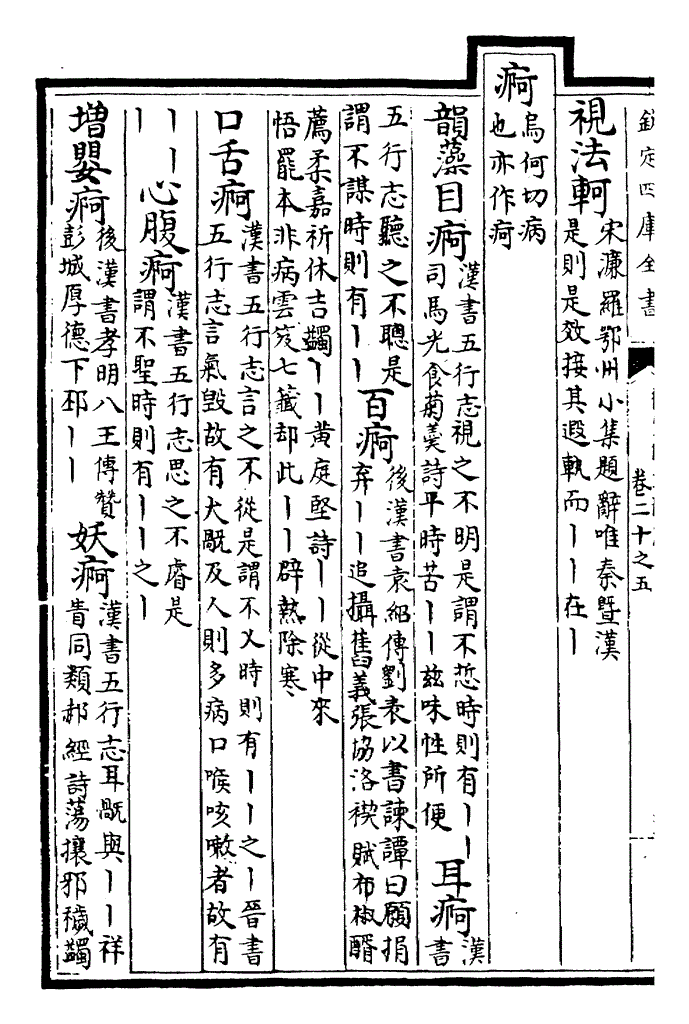 欽定四庫全書
卷二十之五
視法軻
宋濂羅鄂州小集題辭唯秦暨漢
是則是效接其遐軌而丨丨在丨
痾
烏何切病
也亦作疴
韻藻目痾
漢書五行志視之不明是謂不悊時則有丨丨
司馬光食菊羹詩平時苦丨丨兹味性所便
耳痾
漢書
五行志聽之不聰是
謂不謀時則有丨丨
百痾
後漢書袁紹傳劉表以書諫譚曰願捐
弃丨丨追攝舊義張協洛禊賦布椒醑
薦柔嘉祈休吉蠲丨丨黄庭堅詩丨丨從中來
悟罷本非病雲笈七籤却此丨丨辟熱除寒
口舌痾
漢書五行志言之不從是謂不乂時則有丨丨之丨晉書
五行志言氣毁故有犬旤及人則多病口喉咳嗽者故有
丨丨丨
心腹痾
漢書五行志思之不睿是
謂不聖時則有丨丨之丨
增嬰痾
後漢書孝明八王傳贊
彭城厚德下邳丨丨
妖痾
漢書五行志耳旤與丨丨祥
眚同類郝經詩蕩攘邪穢蠲